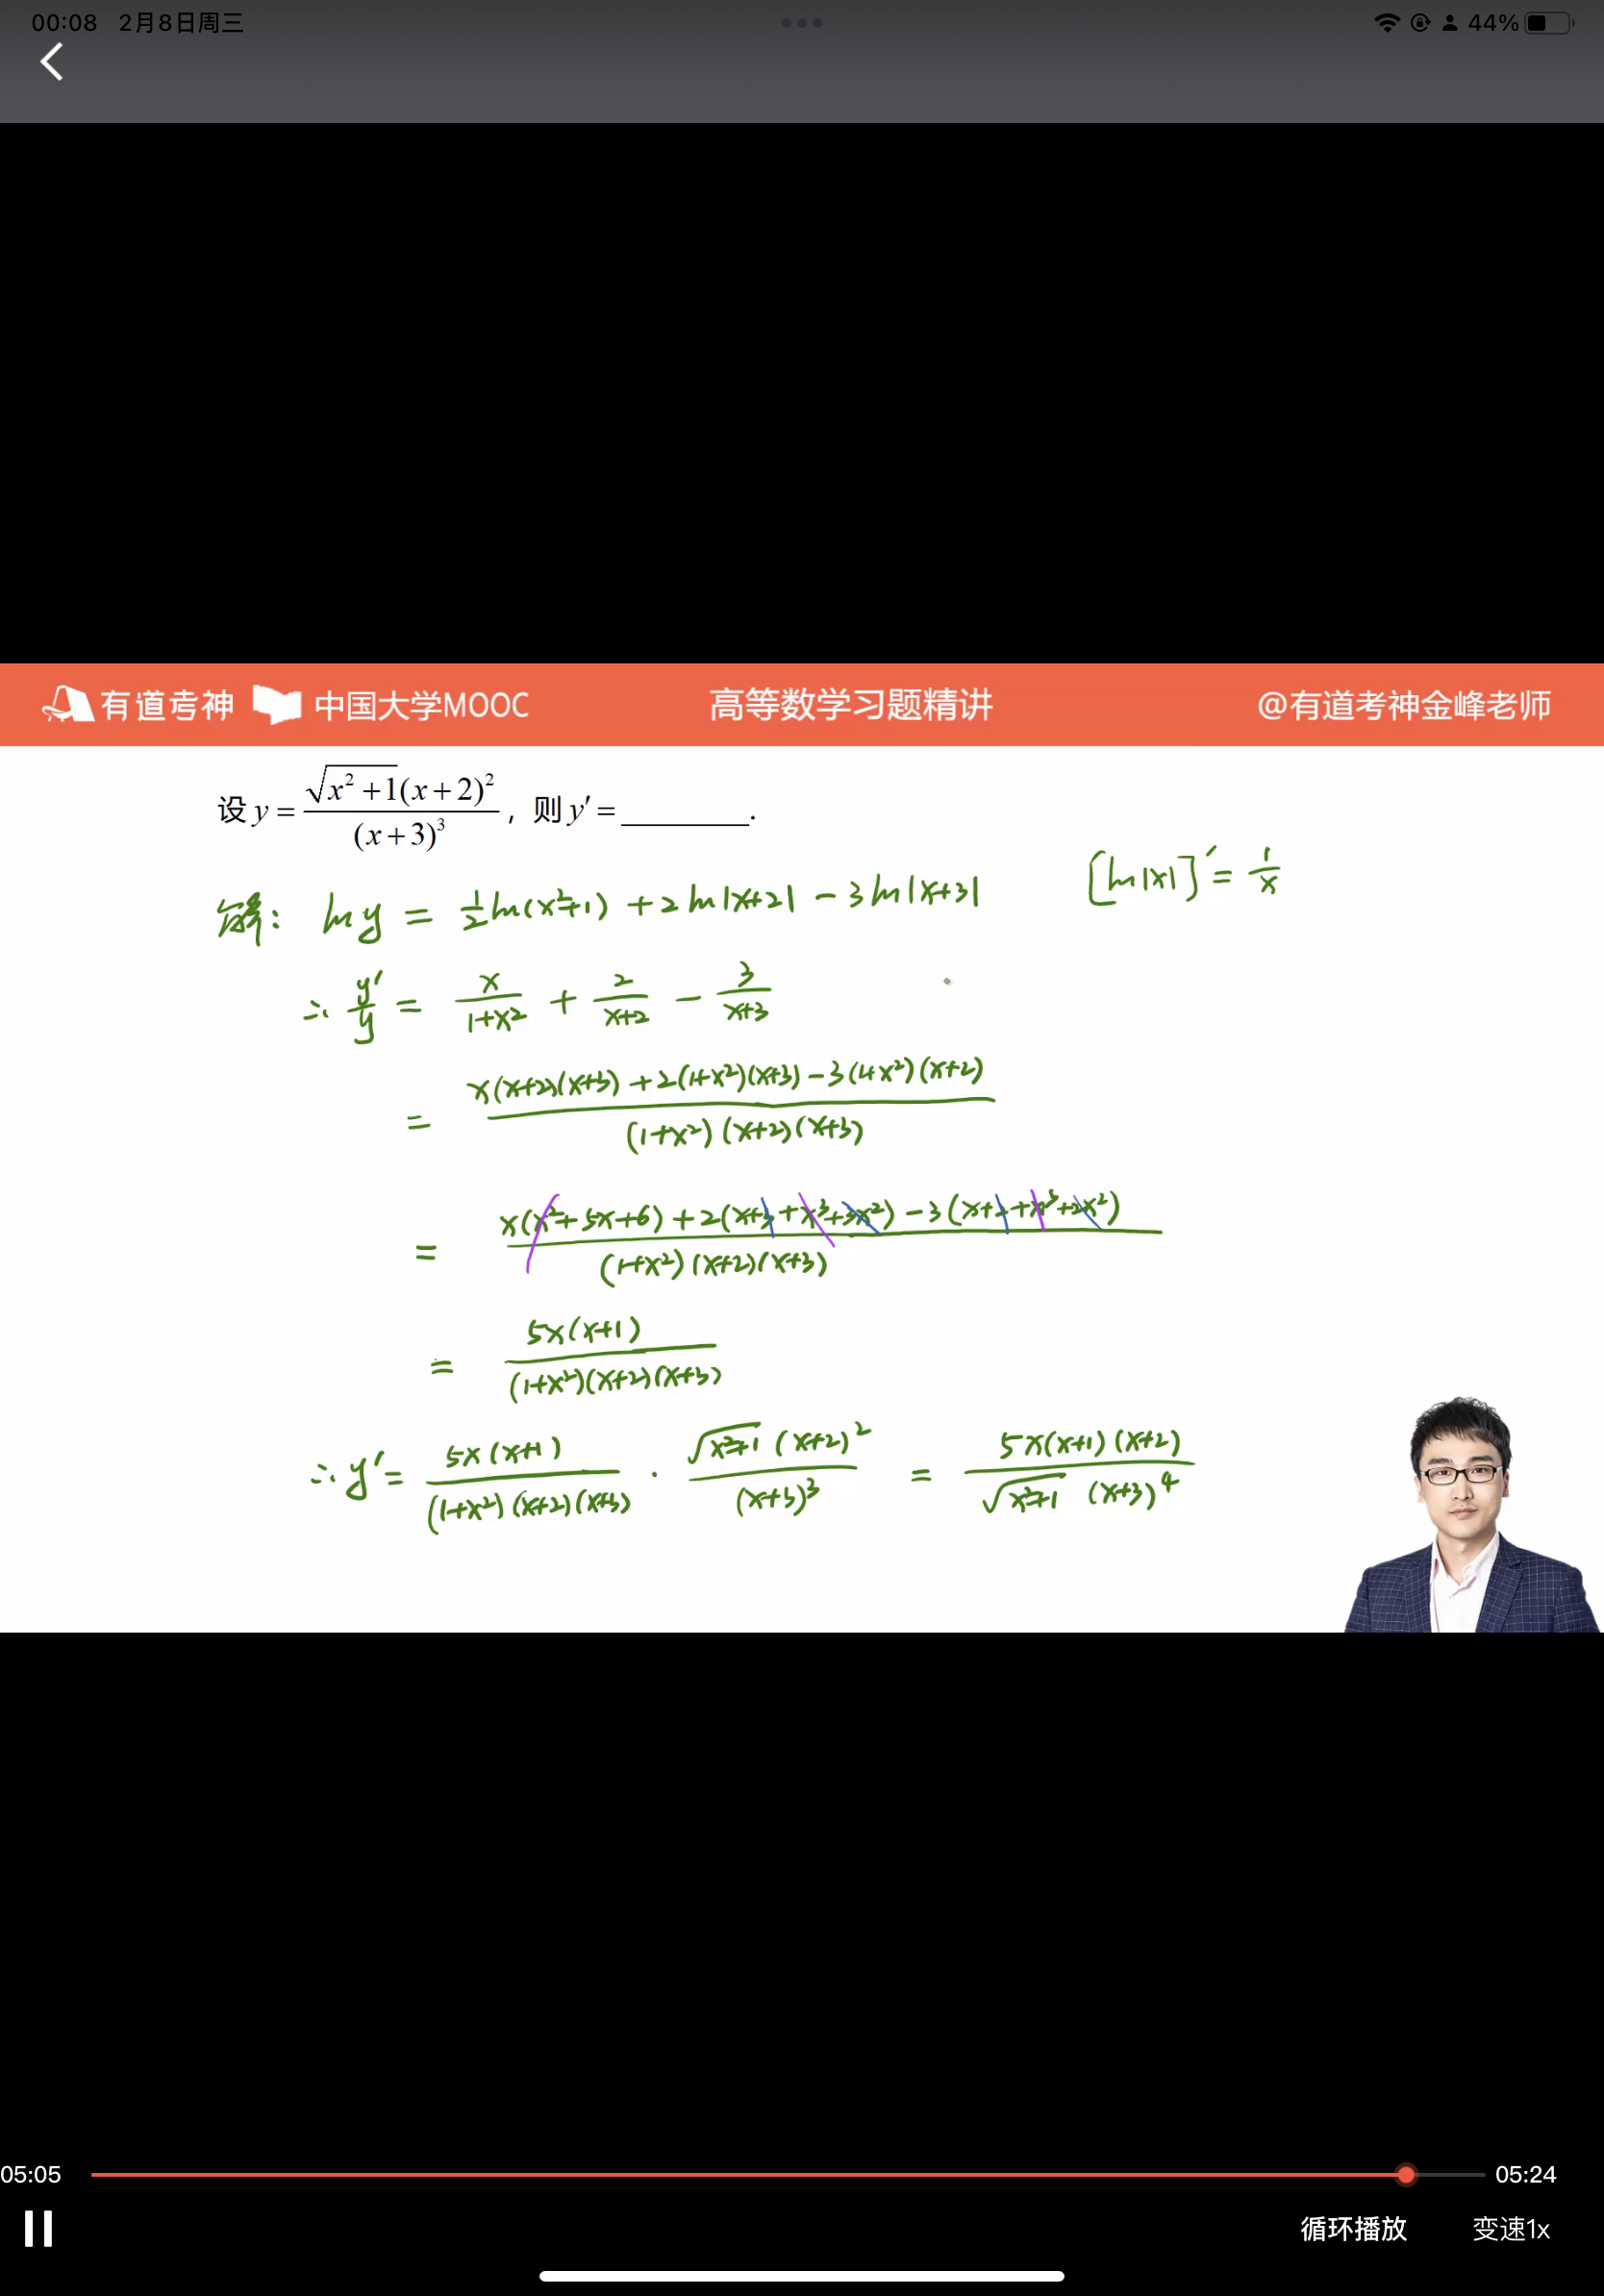 00:08 2月8日周三 44%
有道考神 中国大学MOOC 高等数学习题精讲 @有道考神金峰老师
设 y = √(x²+1)(x+2)² / (x+3)³ ，则 y′ = ________.
解: ln y = 1/2 ln(x²+1) + 2 ln|x+2| - 3 ln|x+3| [ln|x|]′ = 1/x
∴ y′/y = x/(1+x²) + 2/(x+2) - 3/(x+3)
= (x(x+2)(x+3) + 2(1+x²)(x+3) - 3(1+x²)(x+2)) / ((1+x²)(x+2)(x+3))
= (x(x²+5x+6) + 2(x+3+x³+3x²) - 3(x+2+x³+2x²)) / ((1+x²)(x+2)(x+3))
= 5x(x+1) / ((1+x²)(x+2)(x+3))
∴ y′ = 5x(x+1) / ((1+x²)(x+2)(x+3)) · √(x²+1) (x+2)² / (x+3)³ = 5x(x+1)(x+2) / (√(x²+1) (x+3)⁴)
05:05 05:24
循环播放 变速1x